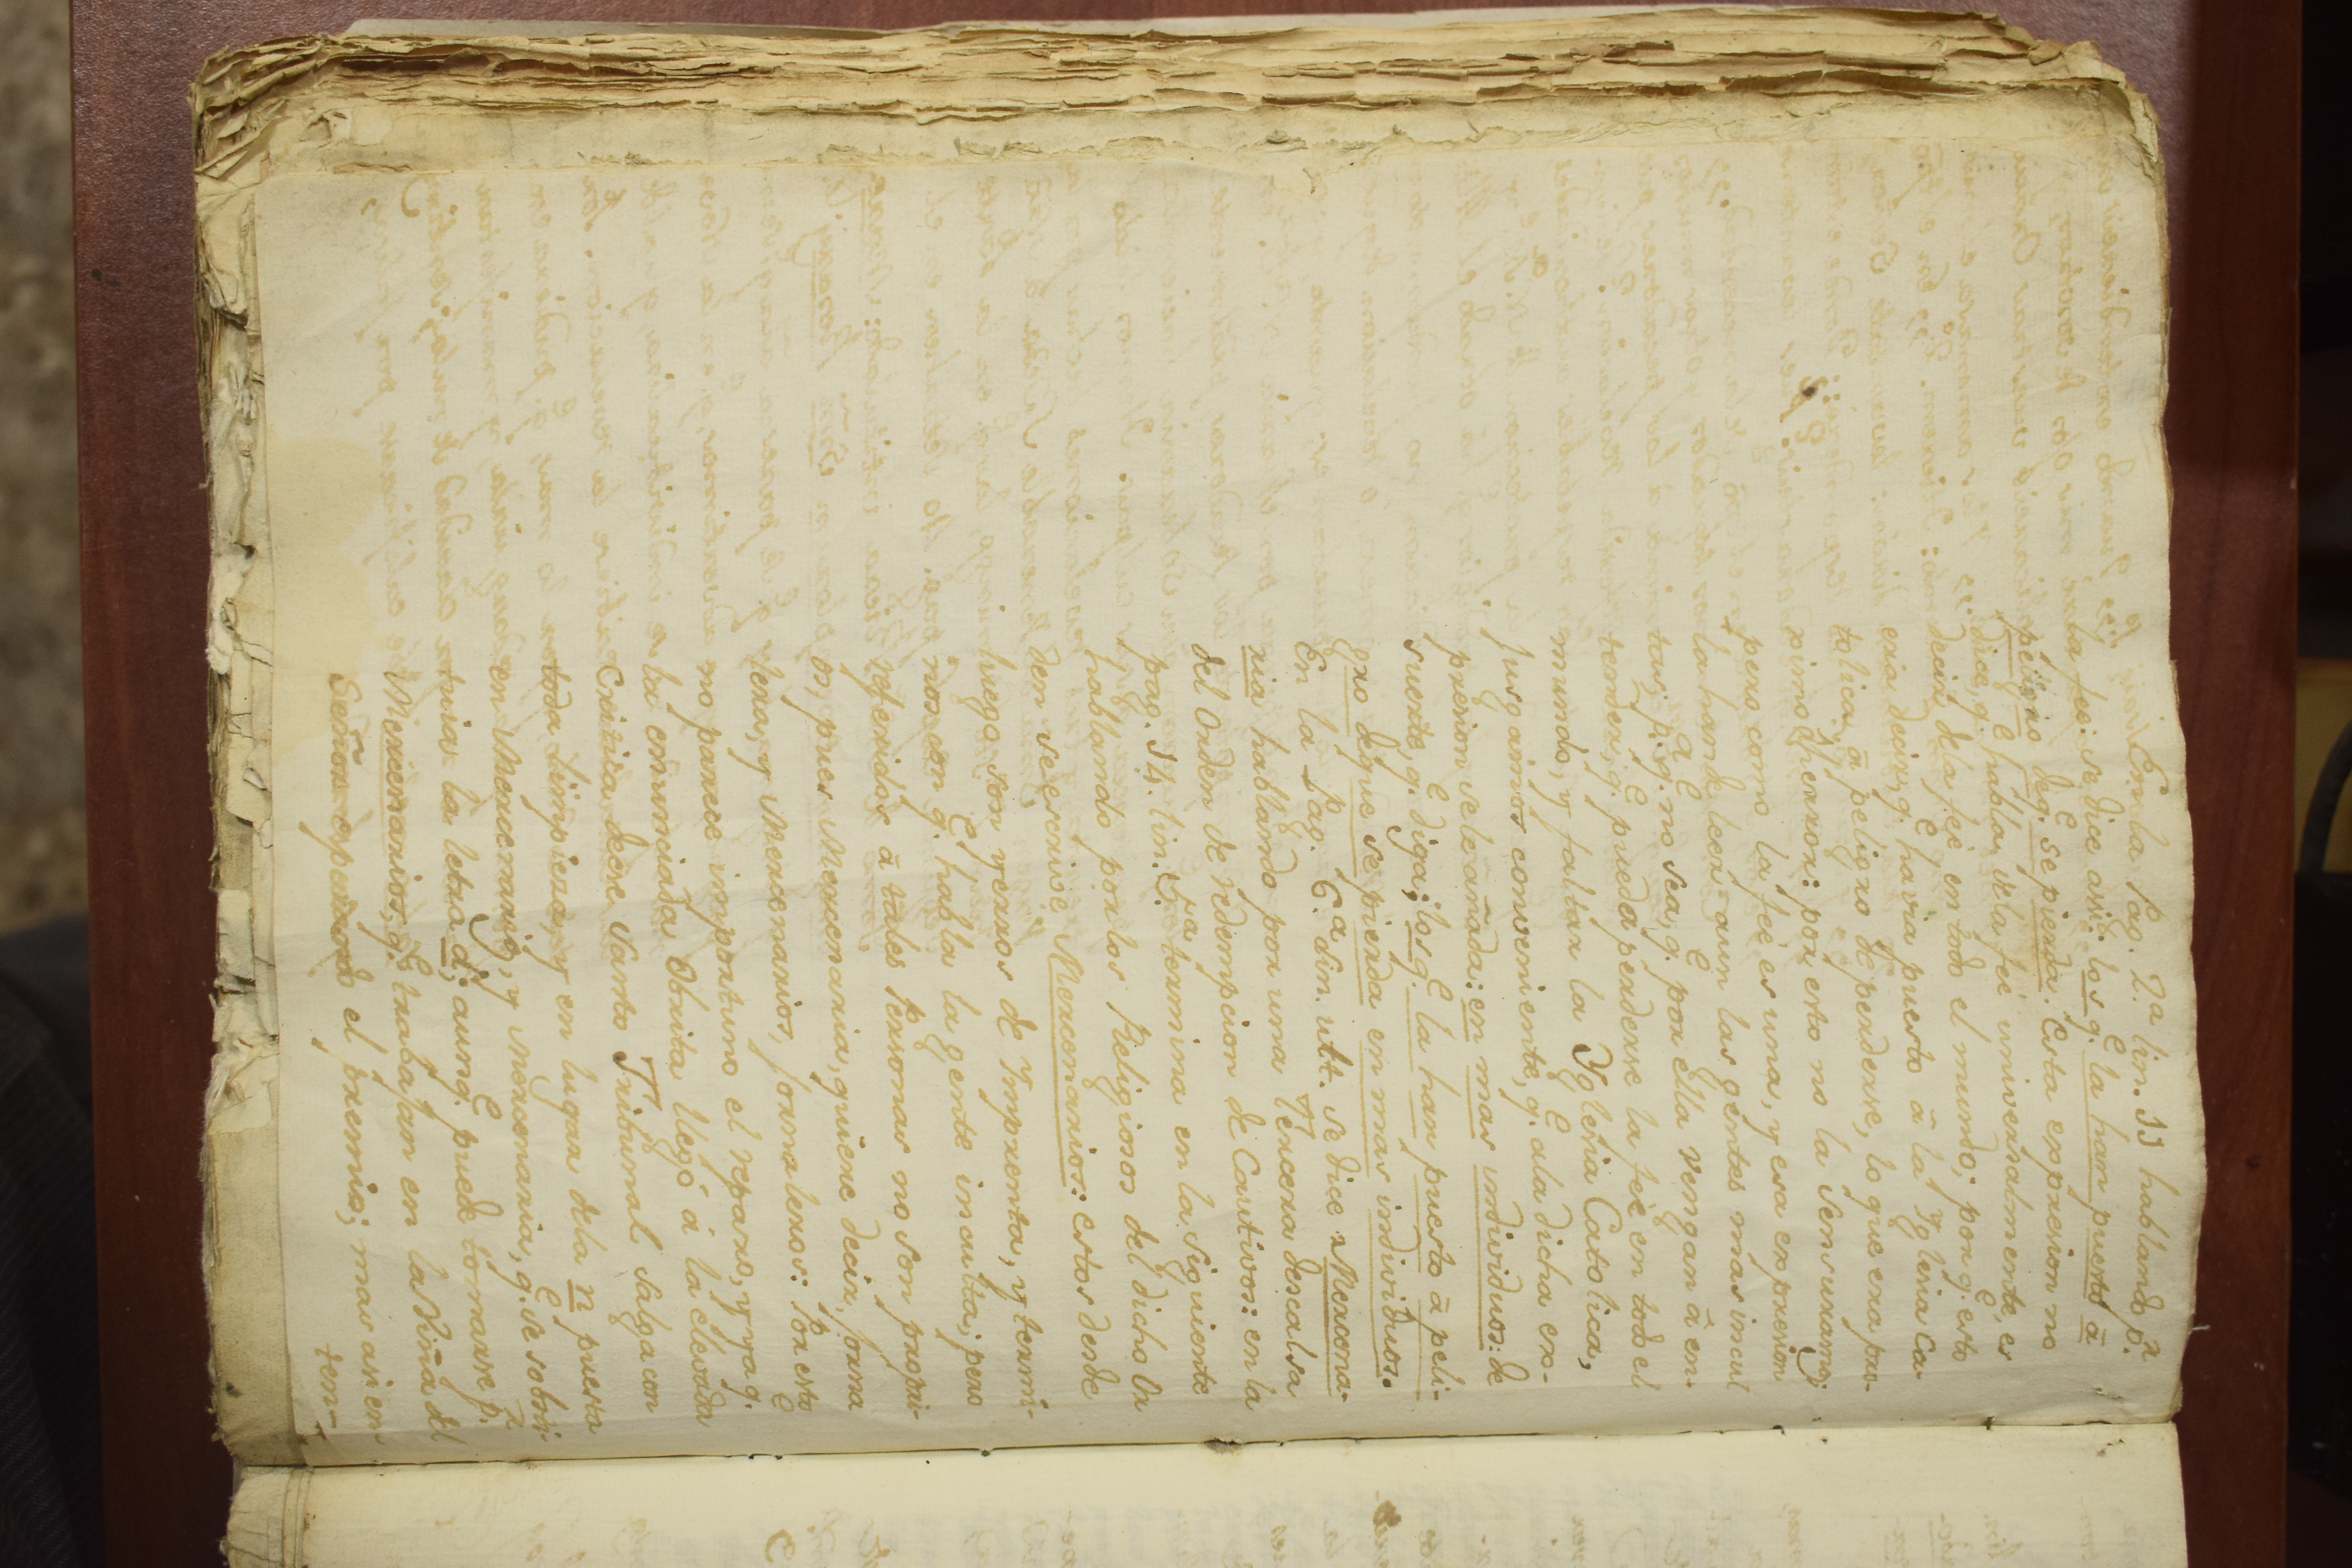 En la Pag. 7.a lin. 11 hablando p.r
la fee: se dice asi: los q.e la han puesto à
peligro de q.e se pierda. Esta expresion no
dice, q.e habla, de la feè universalmente, es
decir de la feè en todo el mundo; por q.e esto
eria decir, q.e havia puesto à la Yglesia Ca-
tolica, à peligro de perderse, lo que era pro-
ximo herror: por esto no la sensuramos;
pero como la feè es una, y esa expresion
la han de leer aun las gentes mas incul
tas; p.a q.e no sea, q.e por ella vengan à en-
tender, q.e pueda perderse la feè en todo el
mundo, y faltar la Yglesia Catolica,
Jusgamos conveniente, q.e a la dicha ex-
presion se le añada: en mas individuos: de
suerte, q.e diga; los q.e la han puesto à peli-
gro de que se pierda en mas individuos.
En la Pag. 6.a lin. ult. se dice Mercena-
ria hablando por una Tercera descalsa
del Orden de redempcion de Cautivos: en la
pag. 14. lin. 5.ra termina en la siguiente
hablando por los Religiosos del dicho Or
den se escrive Mercenarios: estos desde
luego son yerros de Ymprenta, y termi-
nos con q.e habla la gente inculta; pero
referidos à tales Personas no son propri-
os, pues Mercenaria, quiere decir, forna
lera, y Mercenarios, fornaleros: Por esto
no parece importuno el reparo, y ya q.e
la enunciada Obrita llegó à la elevada
Critica de ese Santo Tribunal salga con
toda limpieza, y en lugar de la n puesta
en Mercenario, y Mercenaria, q.e se sobrini
tuia la letra d; aunq.e puede tomarse p.r
Mercenarios, q.e trabajan en la Viña del
Señor esperando el premio; mas asi en-
ten-